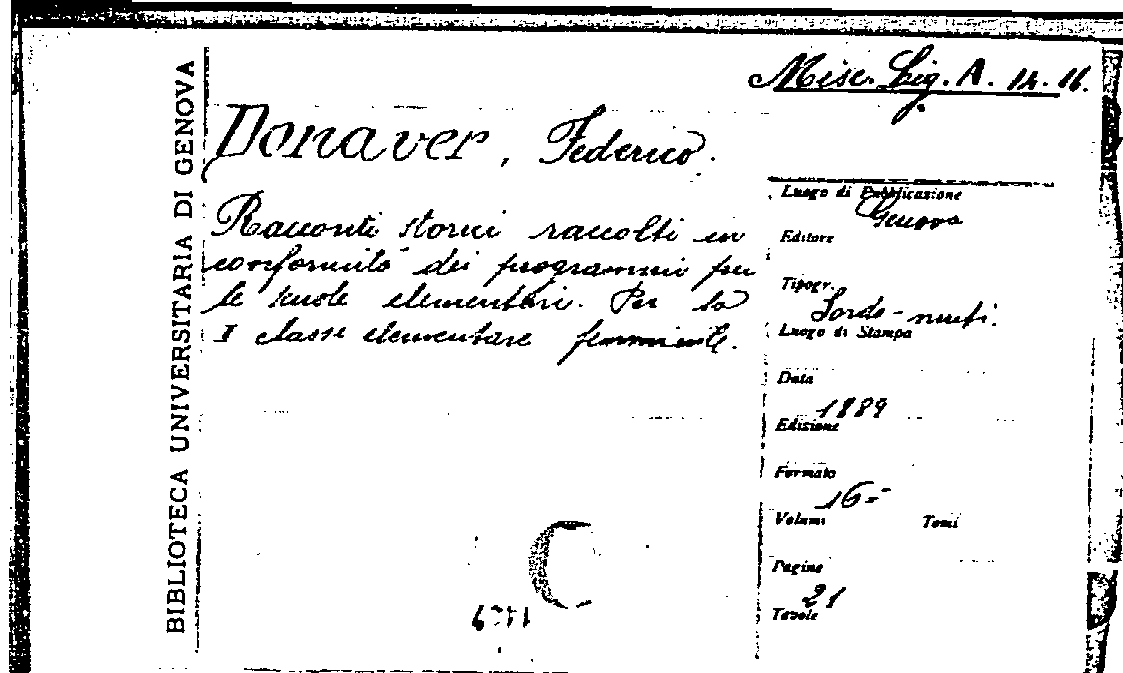 Misc. Lig. A. 14. 16.
BIBLIOTECA UNIVERSITARIA DI GENOVA
Donaver, Federico.
Racconti storici raccolti in
conformità dei programmi per
le scuole elementari. Per la
I classe elementare femminile.
Luogo di Pubblicazione
Genova
Editore
Tipogr.
Sordo-muti.
Luogo di Stampa
Data
1889
Edizione
Formato
16=
Volumi Tomi
Pagine
21
Tavole